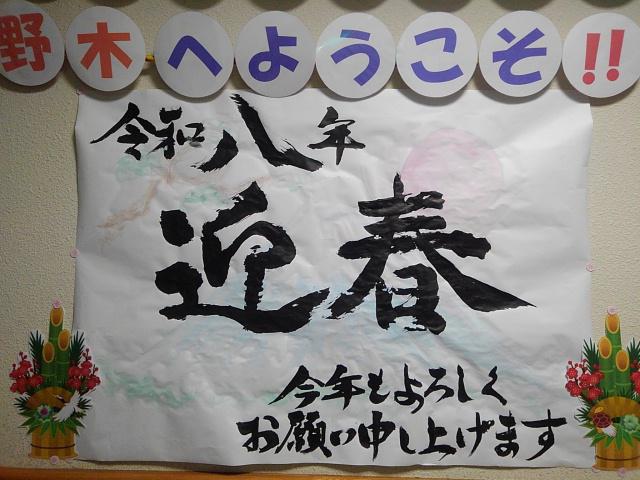 野木へようこそ!!
令和八年
迎春
今年もよろしく
お願い申し上げます